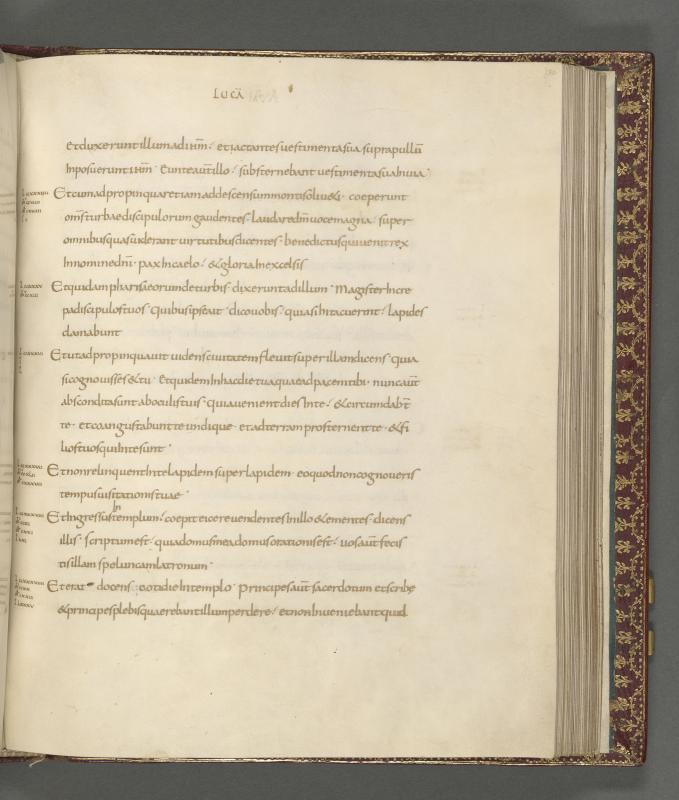 LUCĀ
Et duxerunt illum ad ihm̄. et jactantes vestimenta sua supra pullū
Inposuerunt ihm̄. Eunte aūt illo. substernebant vestimenta sua in via.
Et cum adpropinquaret iam ad descensum montis oliveti. coeperunt
om̄s turbae discipulorum gaudentes. laudare dm̄ voce magna. super
omnibus quas viderant virtutibus dicentes. benedictus qui venit rex
In nomine dn̄i. pax in caelo. & gloria in excelsis
Et quidam pharisaeorum de turbis. dixerunt ad illum. Magister incre
pa discipulos tuos. Quibus ipse ait. dico vobis. quia si hi tacuerint. lapides
clamabunt
Et ut adpropinquavit videns civitatem flevit super illam dicens. quia
si cognovisses & tu. Et quidem in hac die tua quae ad pacem tibi. nunc aūt
abscondita sunt ab oculis tuis. quia venient dies in te. & circumdabt̄
te. et coangustabunt te undique. et ad terram prosternent te. & fi
lios tuos qui in te sunt.
Et non relinquent in te lapidem super lapidem. eo quod non cognoveris
tempus visitationis tuae.
In
Et ingressus templum. coepit eicere vendentes in illo & ementes. dicens
illis. scriptum est. quia domus mea domus orationis est. vos aūt fecis
tis illam speluncam latronum.
Et erat docens cotidie in templo. principes aūt sacerdotum et scribę
& principes plebis quaerebant illum perdere. et non inveniebant quid